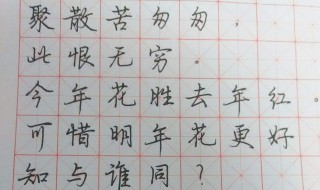 聚散苦匆匆，
此恨无穷。
今年花胜去年红。
可惜明年花更好
知与谁同？